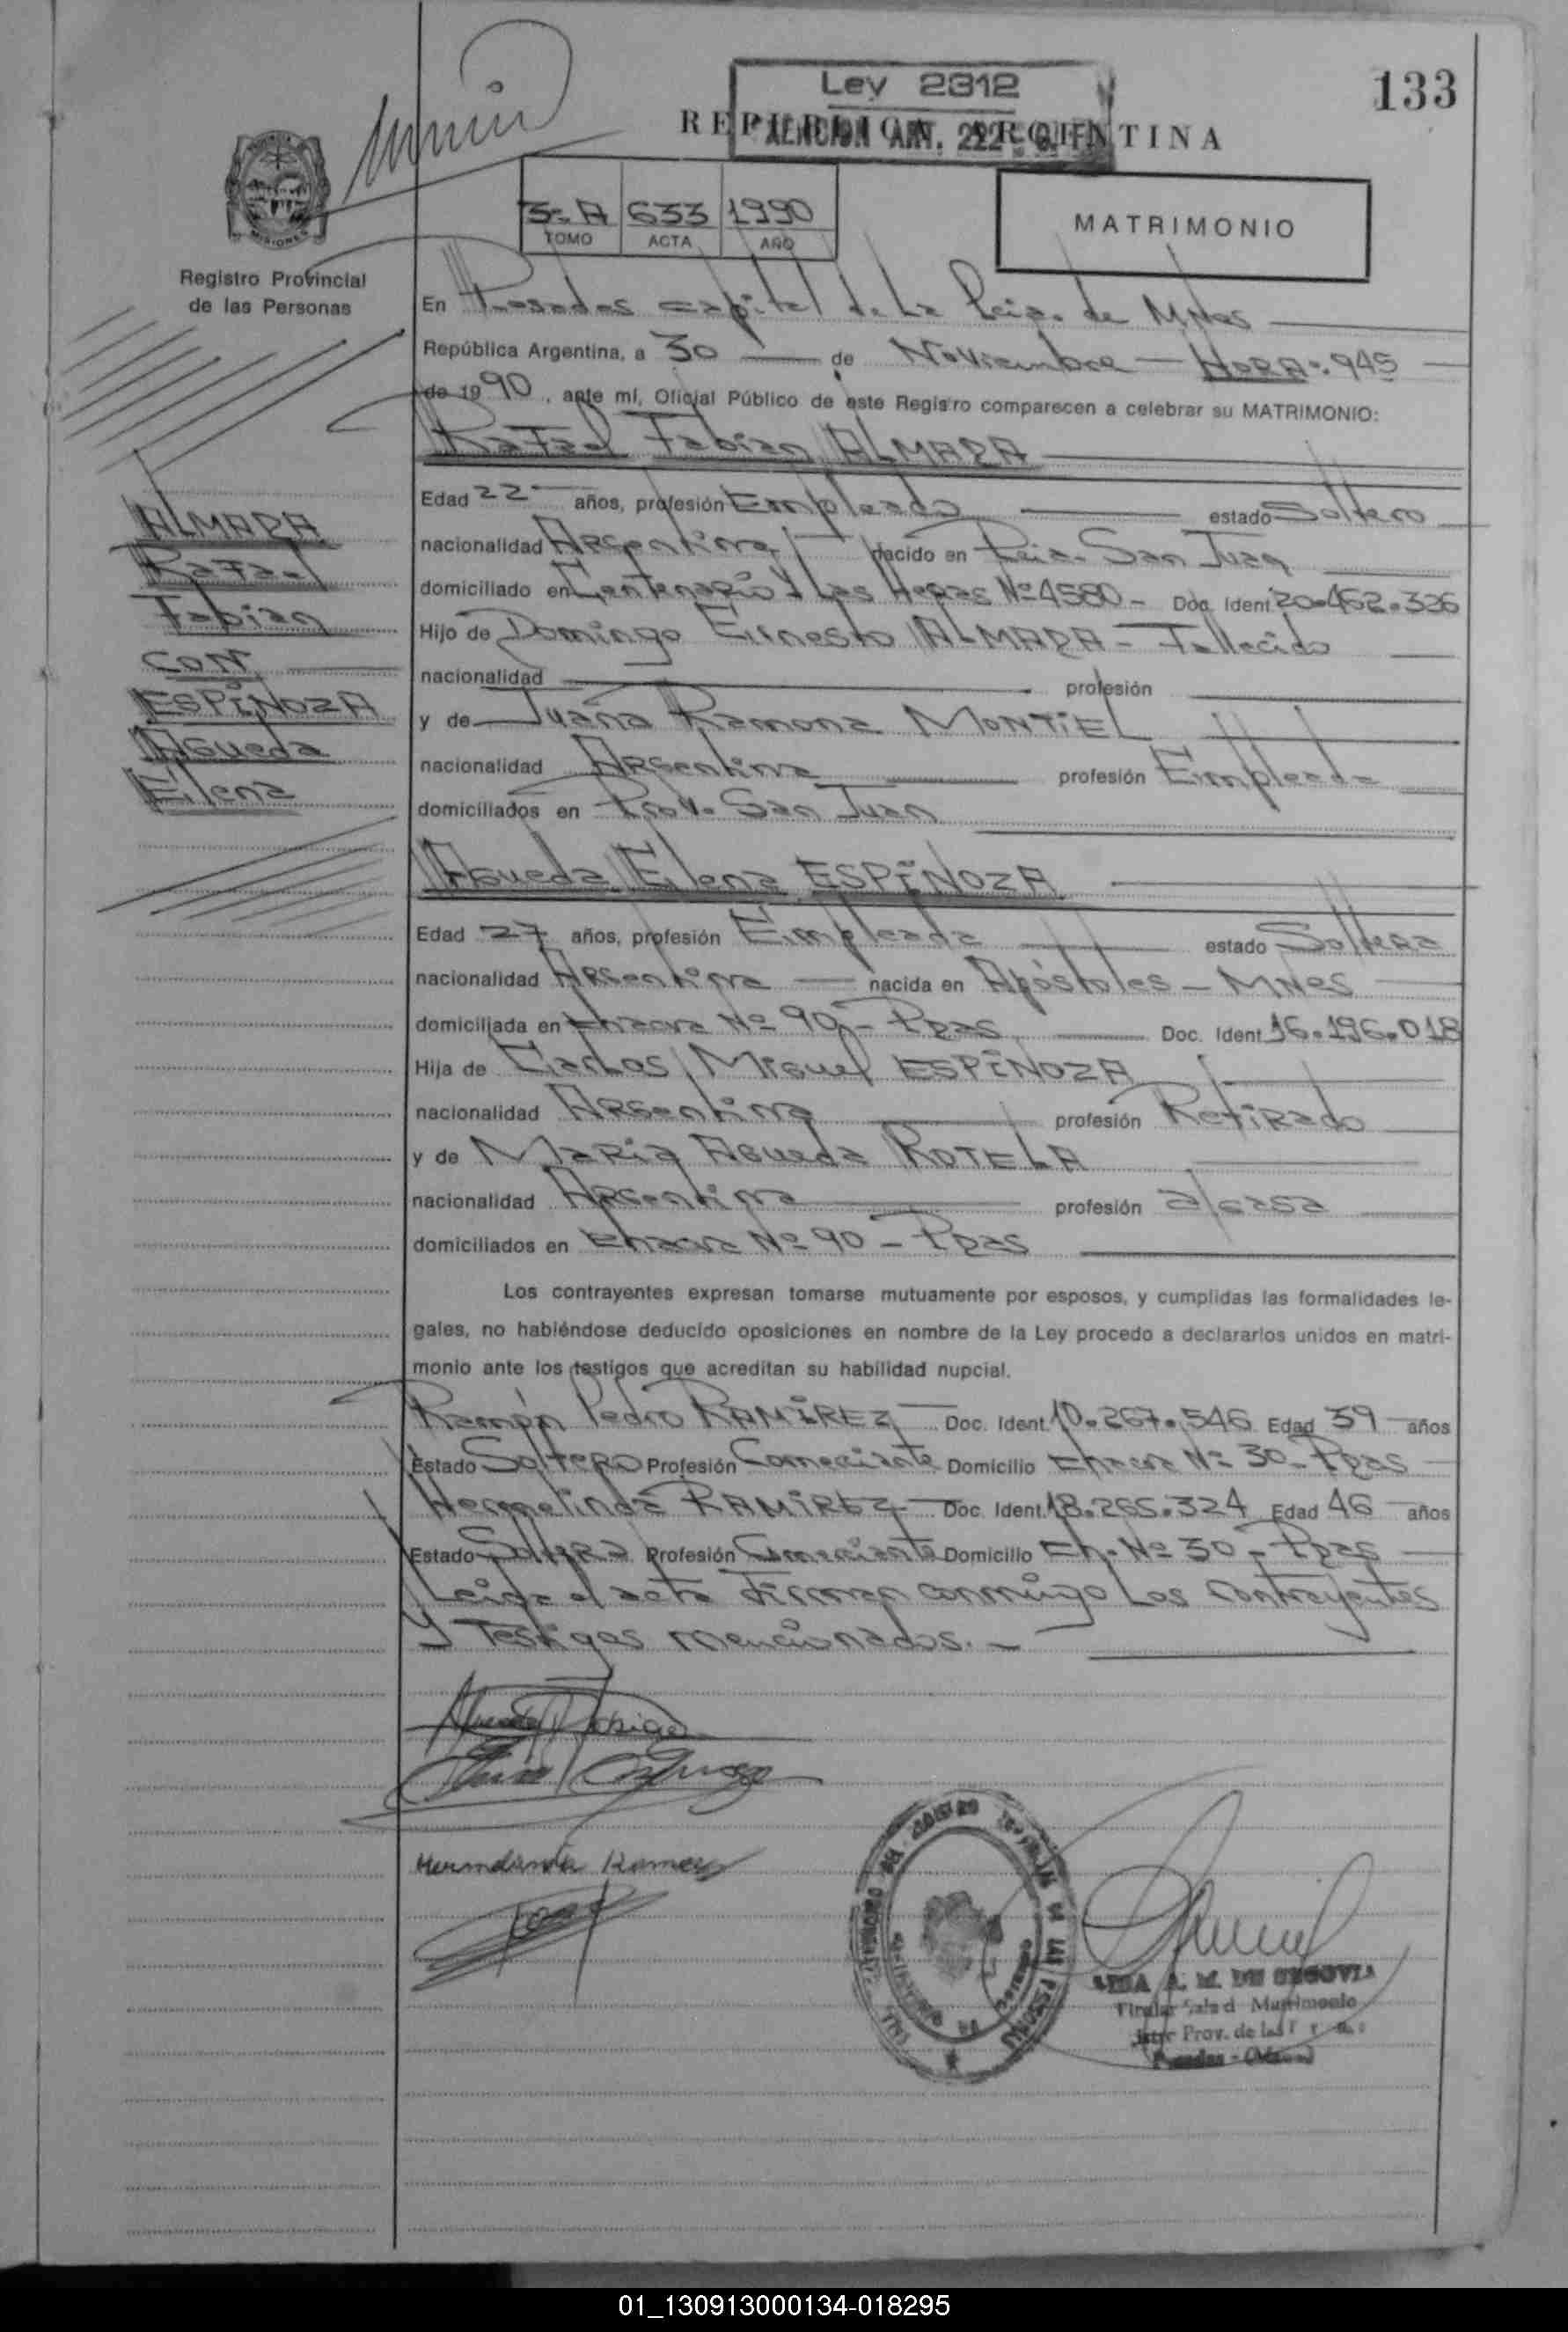 133
Ley 2312
REPUBLICA ARGENTINA
3-A 633 1990
TOMO ACTA AÑO
MATRIMONIO
MISIONES
Registro Provincial
de las Personas
En Posadas capital de La Pcia. de MNes
República Argentina, a 30 de Noviembre - HORA: 945
de 1990, ante mí, Oficial Público de este Registro comparecen a celebrar su MATRIMONIO:
Rafael Fabian ALMADA
Edad 22 años, profesión Empleado estado Soltero
nacionalidad Argentina nacido en Pcia. San Juan
domiciliado en Centenario y Las Heras Nº 4580 - Doc. Ident. 20.462.326
Hijo de Domingo Ernesto ALMADA - Fallecido
nacionalidad profesión
y de Juana Ramona MONTIEL
nacionalidad Argentina profesión Empleada
domiciliados en Prov. San Juan
Agueda Elena ESPINOZA
Edad 27 años, profesión Empleada estado Soltera
nacionalidad Argentina nacida en Apóstoles - MNes
domiciliada en Chacra Nº 90 - Pdas Doc. Ident. 16.196.018
Hija de Carlos Miguel ESPINOZA
nacionalidad Argentina profesión Retirado
y de Maria Agueda ROTELA
nacionalidad Argentina profesión a/casa
domiciliados en Chacra Nº 90 - Pdas
Los contrayentes expresan tomarse mutuamente por esposos, y cumplidas las formalidades le-
gales, no habiéndose deducido oposiciones en nombre de la Ley procedo a declararlos unidos en matri-
monio ante los testigos que acreditan su habilidad nupcial.
Ramón Pedro RAMIREZ Doc. Ident. 10.267.546 Edad 39 años
Estado Soltero Profesión Comerciante Domicilio Chacra Nº 30 - Pdas
Hermelinda RAMIREZ Doc. Ident. 18.265.324 Edad 46 años
Estado Soltera Profesión Comerciante Domicilio Ch. Nº 30 - Pdas
Leida el acta firman conmigo Los contrayentes
y Testigos mencionados. -
ALMADA
Rafael
Fabian
CON
ESPINOZA
Agueda
Elena
A. M. DE SEGOVIA
Titular Matrimonio
Prov. de las
Posadas
01_130913000134-018295